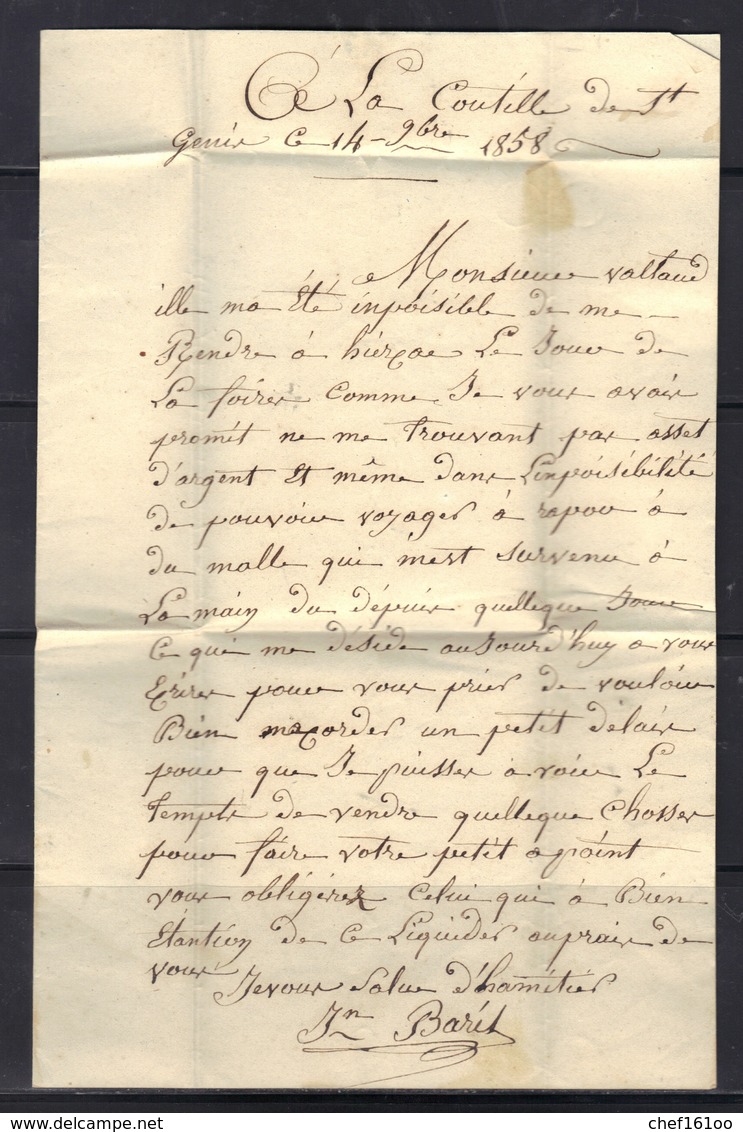 Cé La Coutille de St
Genis Ce 14 - 9bre 1858
Monsieur valtaud
ille ma Été inpoisible de me
Rendre á hiérsac Le Jour de
La foires Comme Je vous avais
promit ne me Trouvant pas asset
d'argent Et même dans L'inpoisibélité
de pouvoir voyager á rapor á
du malle qui m'est survenu á
La main du dépuis quelleque Jour
Ce qui me déside aujourd'huy a vous
Ecrires pour vous prier de vouloir
Bien macorder un petit délais
pour que Je puisses avoir Le
Temps de vendre quelleque Chosses
pour faire votre petit apoint
vous obligérez Celui qui á Bien
Etantion de Ce Liquider auprais de
vous
Je vous Salue d'hamétiés
Jn Barit
chef16100